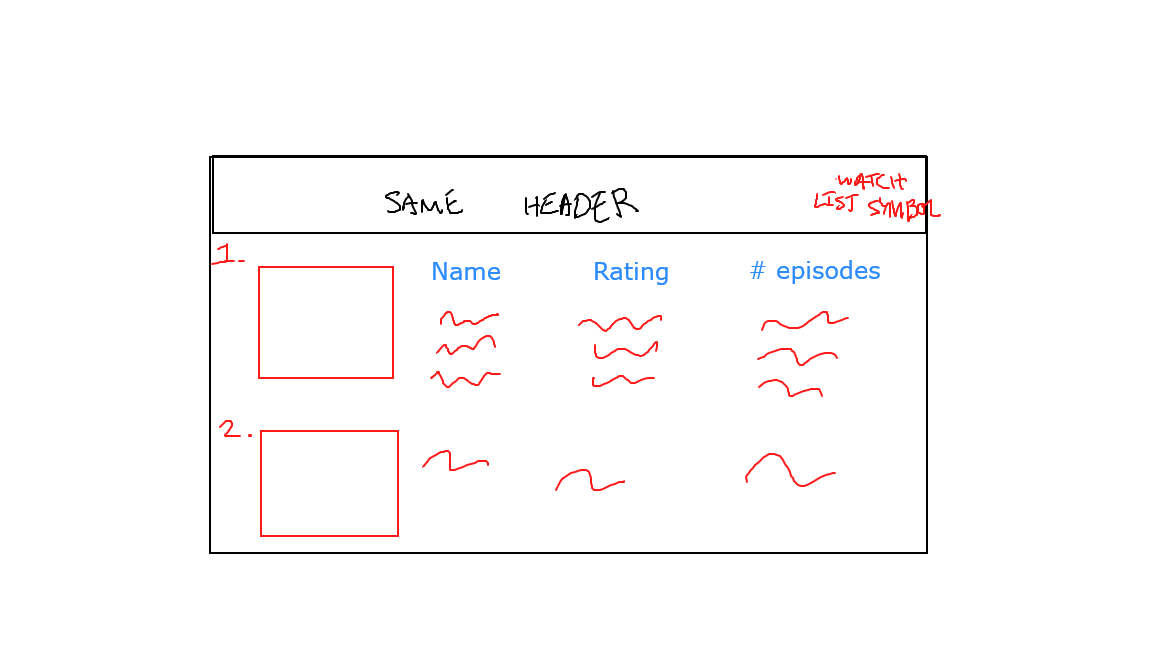 SAME HEADER
WATCH
LIST SYMBOL
1.
Name Rating # episodes
2.